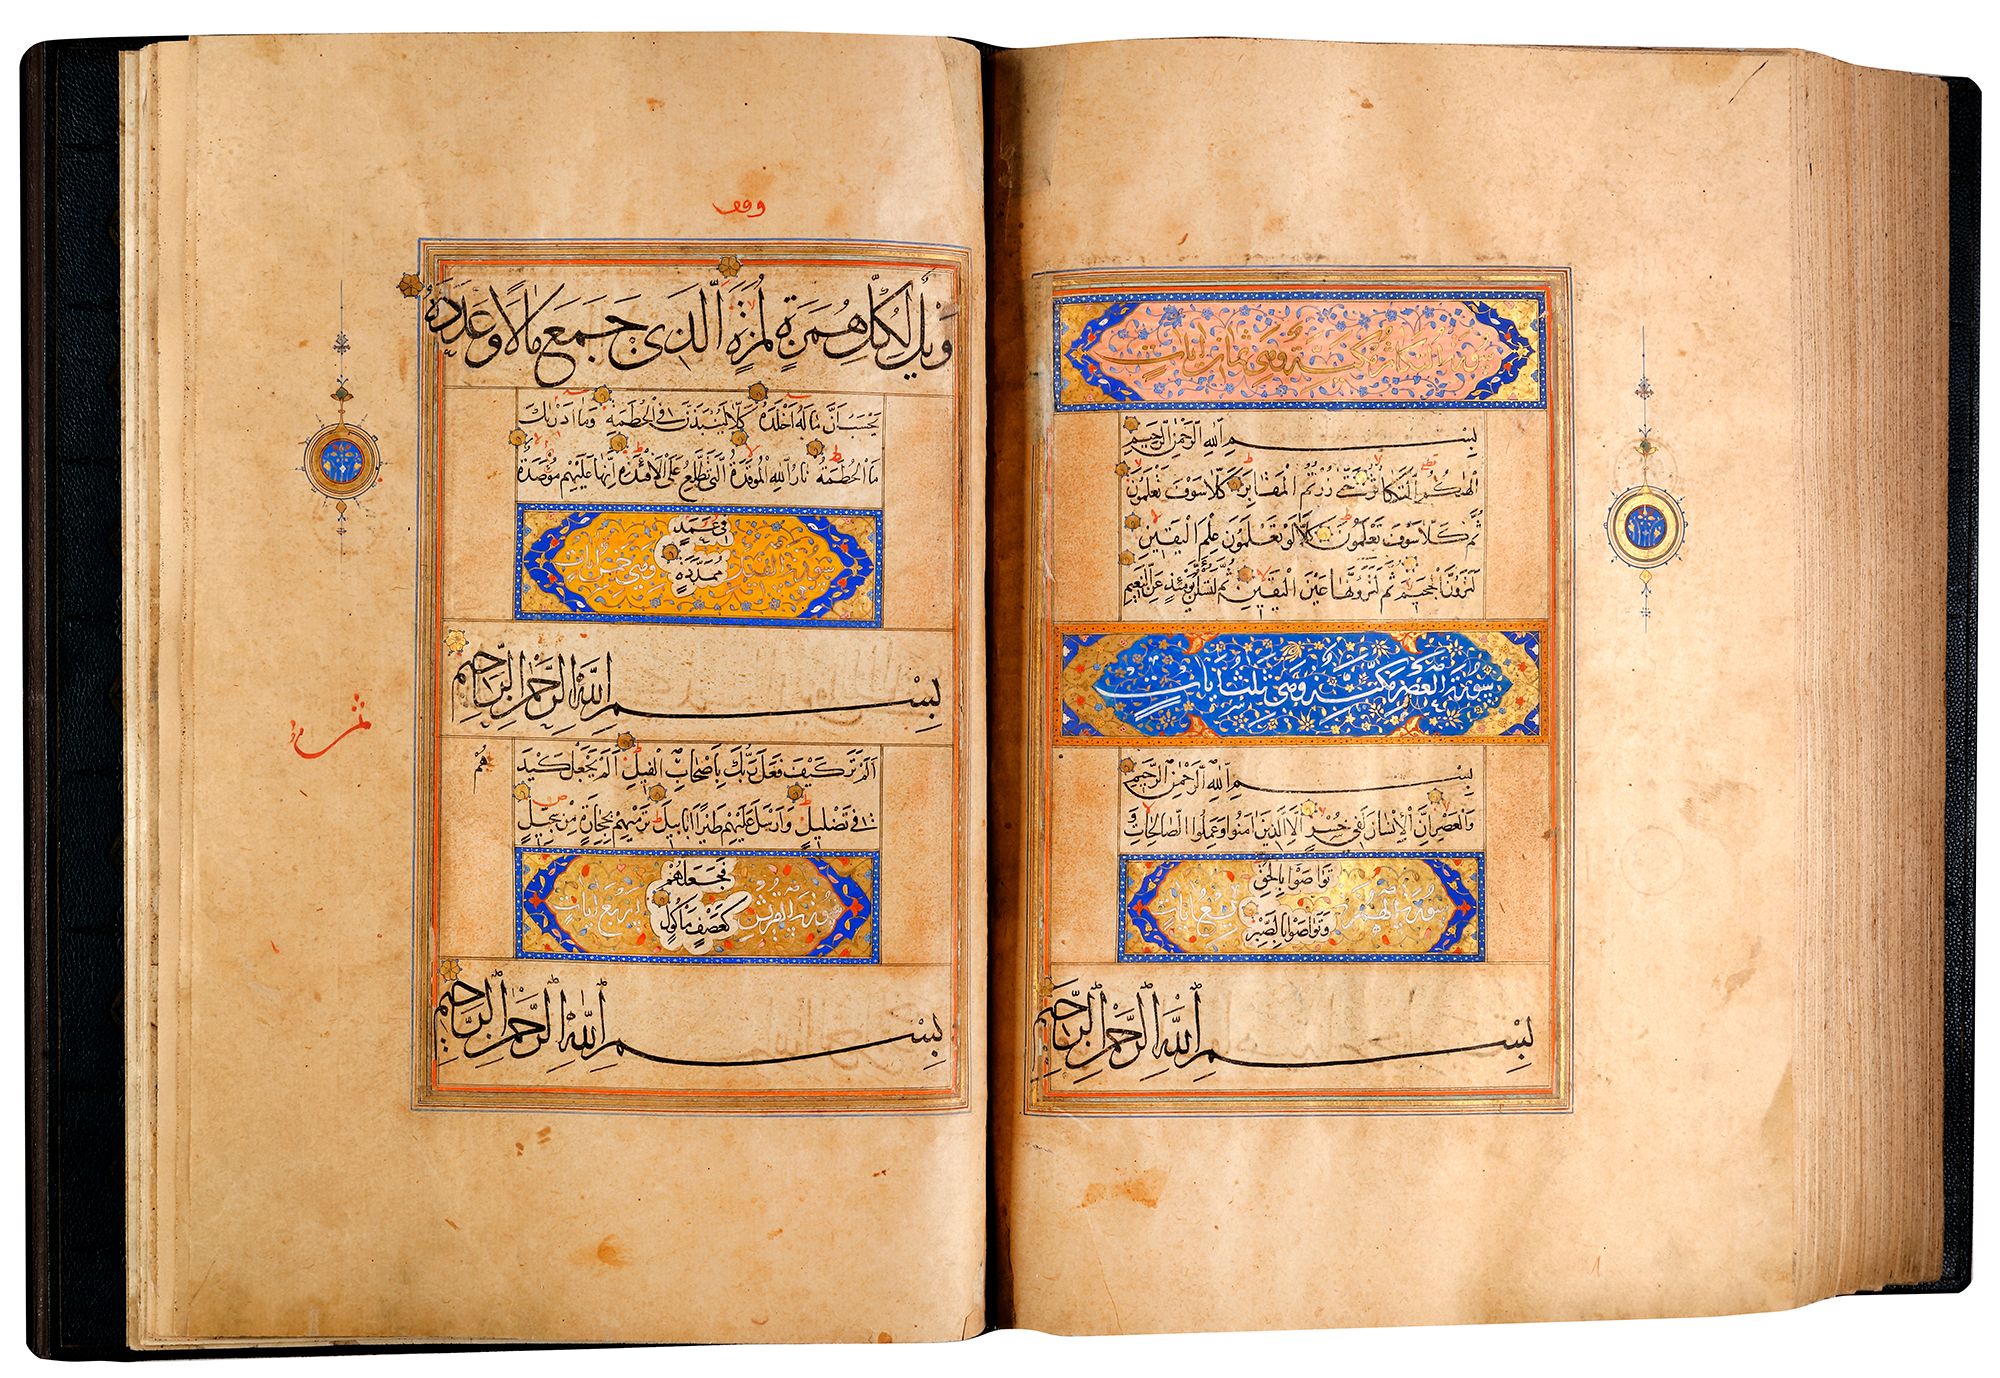 سورة التكاثر مكية وهي ثمان ايات
بِسْمِ اللهِ الرَّحْمٰنِ الرَّحِيمِ
اَلْهٰيكُمُ التَّكَاثُرُ حَتّٰى زُرْتُمُ الْمَقَابِرَ كَلَّا سَوْفَ تَعْلَمُونَ
ثُمَّ كَلَّا سَوْفَ تَعْلَمُونَ كَلَّا لَوْ تَعْلَمُونَ عِلْمَ الْيَقِينِ
لَتَرَوُنَّ الْجَحِيمَ ثُمَّ لَتَرَوُنَّهَا عَيْنَ الْيَقِينِ ثُمَّ لَتُسْئَلُنَّ يَوْمَئِذٍ عَنِ النَّعِيمِ
سورة العصر مكية وهي ثلث ايات
بِسْمِ اللهِ الرَّحْمٰنِ الرَّحِيمِ
وَالْعَصْرِ اِنَّ الْاِنْسَانَ لَفِي خُسْرٍ اِلَّا الَّذِينَ اٰمَنُوا وَعَمِلُوا الصَّالِحَاتِ وَ
تَوَاصَوْا بِالْحَقِّ
سورة الهمزة تسع ايات
وَتَوَاصَوْا بِالصَّبْرِ
بِسْمِ اللهِ الرَّحْمٰنِ الرَّحِيمِ
وقف
وَيْلٌ لِكُلِّ هُمَزَةٍ لُمَزَةٍ الَّذِي جَمَعَ مَالًا وَعَدَّدَهُ
يَحْسَبُ اَنَّ مَالَهُ اَخْلَدَهُ كَلَّا لَيُنْبَذَنَّ فِي الْحُطَمَةِ وَمَا اَدْرٰيكَ
مَا الْحُطَمَةُ نَارُ اللهِ الْمُوقَدَةُ الَّتِي تَطَّلِعُ عَلَى الْاَفْئِدَةِ اِنَّهَا عَلَيْهِمْ مُؤْصَدَةٌ
فِي عَمَدٍ
سورة الفيل وهي خمس ايات
مُمَدَّدَةٍ
بِسْمِ اللهِ الرَّحْمٰنِ الرَّحِيمِ
اَلَمْ تَرَ كَيْفَ فَعَلَ رَبُّكَ بِاَصْحَابِ الْفِيلِ اَلَمْ يَجْعَلْ كَيْدَ
هُمْ
فِي تَضْلِيلٍ وَاَرْسَلَ عَلَيْهِمْ طَيْرًا اَبَابِيلَ تَرْمِيهِمْ بِحِجَارَةٍ مِنْ سِجِّيلٍ
فَجَعَلَهُمْ
سورة القريش اربع ايات
كَعَصْفٍ مَأْكُولٍ
بِسْمِ اللهِ الرَّحْمٰنِ الرَّحِيمِ